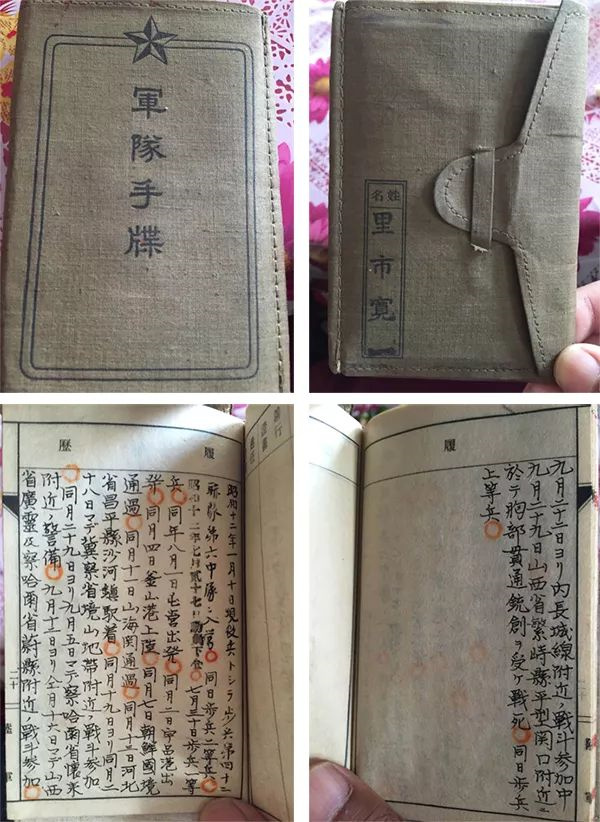 軍隊手牒
姓名
里市寛一
履歴
昭和十二年一月十日現役兵トシテ歩兵第四十二
聯隊第六中隊ニ入營 同日歩兵二等兵
昭和十二年七月貳十七日動員下令 七月三十日歩兵一等
兵 同年八月一日屯営出發 同月二日宇品港出
發 同月四日釜山港上陸 同月七日朝鮮國境
通過 同月十一日山海関通過 同月十三日河北
省昌平縣沙河鎮駅着 同月十九日ヨリ同月二
十八日マデ冀察省境山地帯附近ノ戦斗参加
同月二十九日ヨリ九月五日マデ察哈爾省懐来
附近ノ警備 九月十二日ヨリ仝月十六日マデ山西
省廣靈及察哈爾省蔚縣附近ノ戦斗参加
二十
履
九月二十二日ヨリ内長城線附近ノ戦斗参加中
九月二十九日山西省繁峙縣平型関口附近ニ
於テ胸部貫通銃創ヲ受ケ戦死 同日歩兵
上等兵